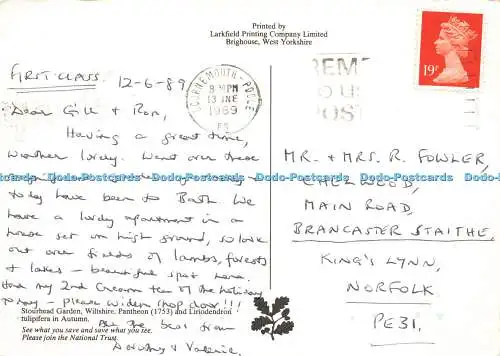 Printed by
Larkfield Printing Company Limited
Brighouse, West Yorkshire
FIRST CLASS. 12-6-89
BOURNEMOUTH-POOLE
8 PM
13 JNE
1989
REMEM
19P
Dear Gill & Ron,
Having a great time,
weather lovely. Went over these
today have been to Bath. We
have a lovely apartment in a
house set on high ground, so look
out over fields of lambs, forests
& lakes - beautiful spot here.
Had my 2nd Cream tea of the holiday
today - please widen shop door!!!
All the best from
Dorothy & Valerie.
MR. & MRS. R. FOWLER,
CHELWOOD,
MAIN ROAD,
BRANCASTER STAITHE,
KING'S LYNN,
NORFOLK
PE31.
Stourhead Garden, Wiltshire. Pantheon (1753) and Liriodendron
tulipifera in Autumn.
See what you save and save what you see.
Please join the National Trust.
Dodo-Postcards Dodo-Postcards Dodo-Postcards Dodo-Postcards Dodo-Postcards Dodo-Postcards